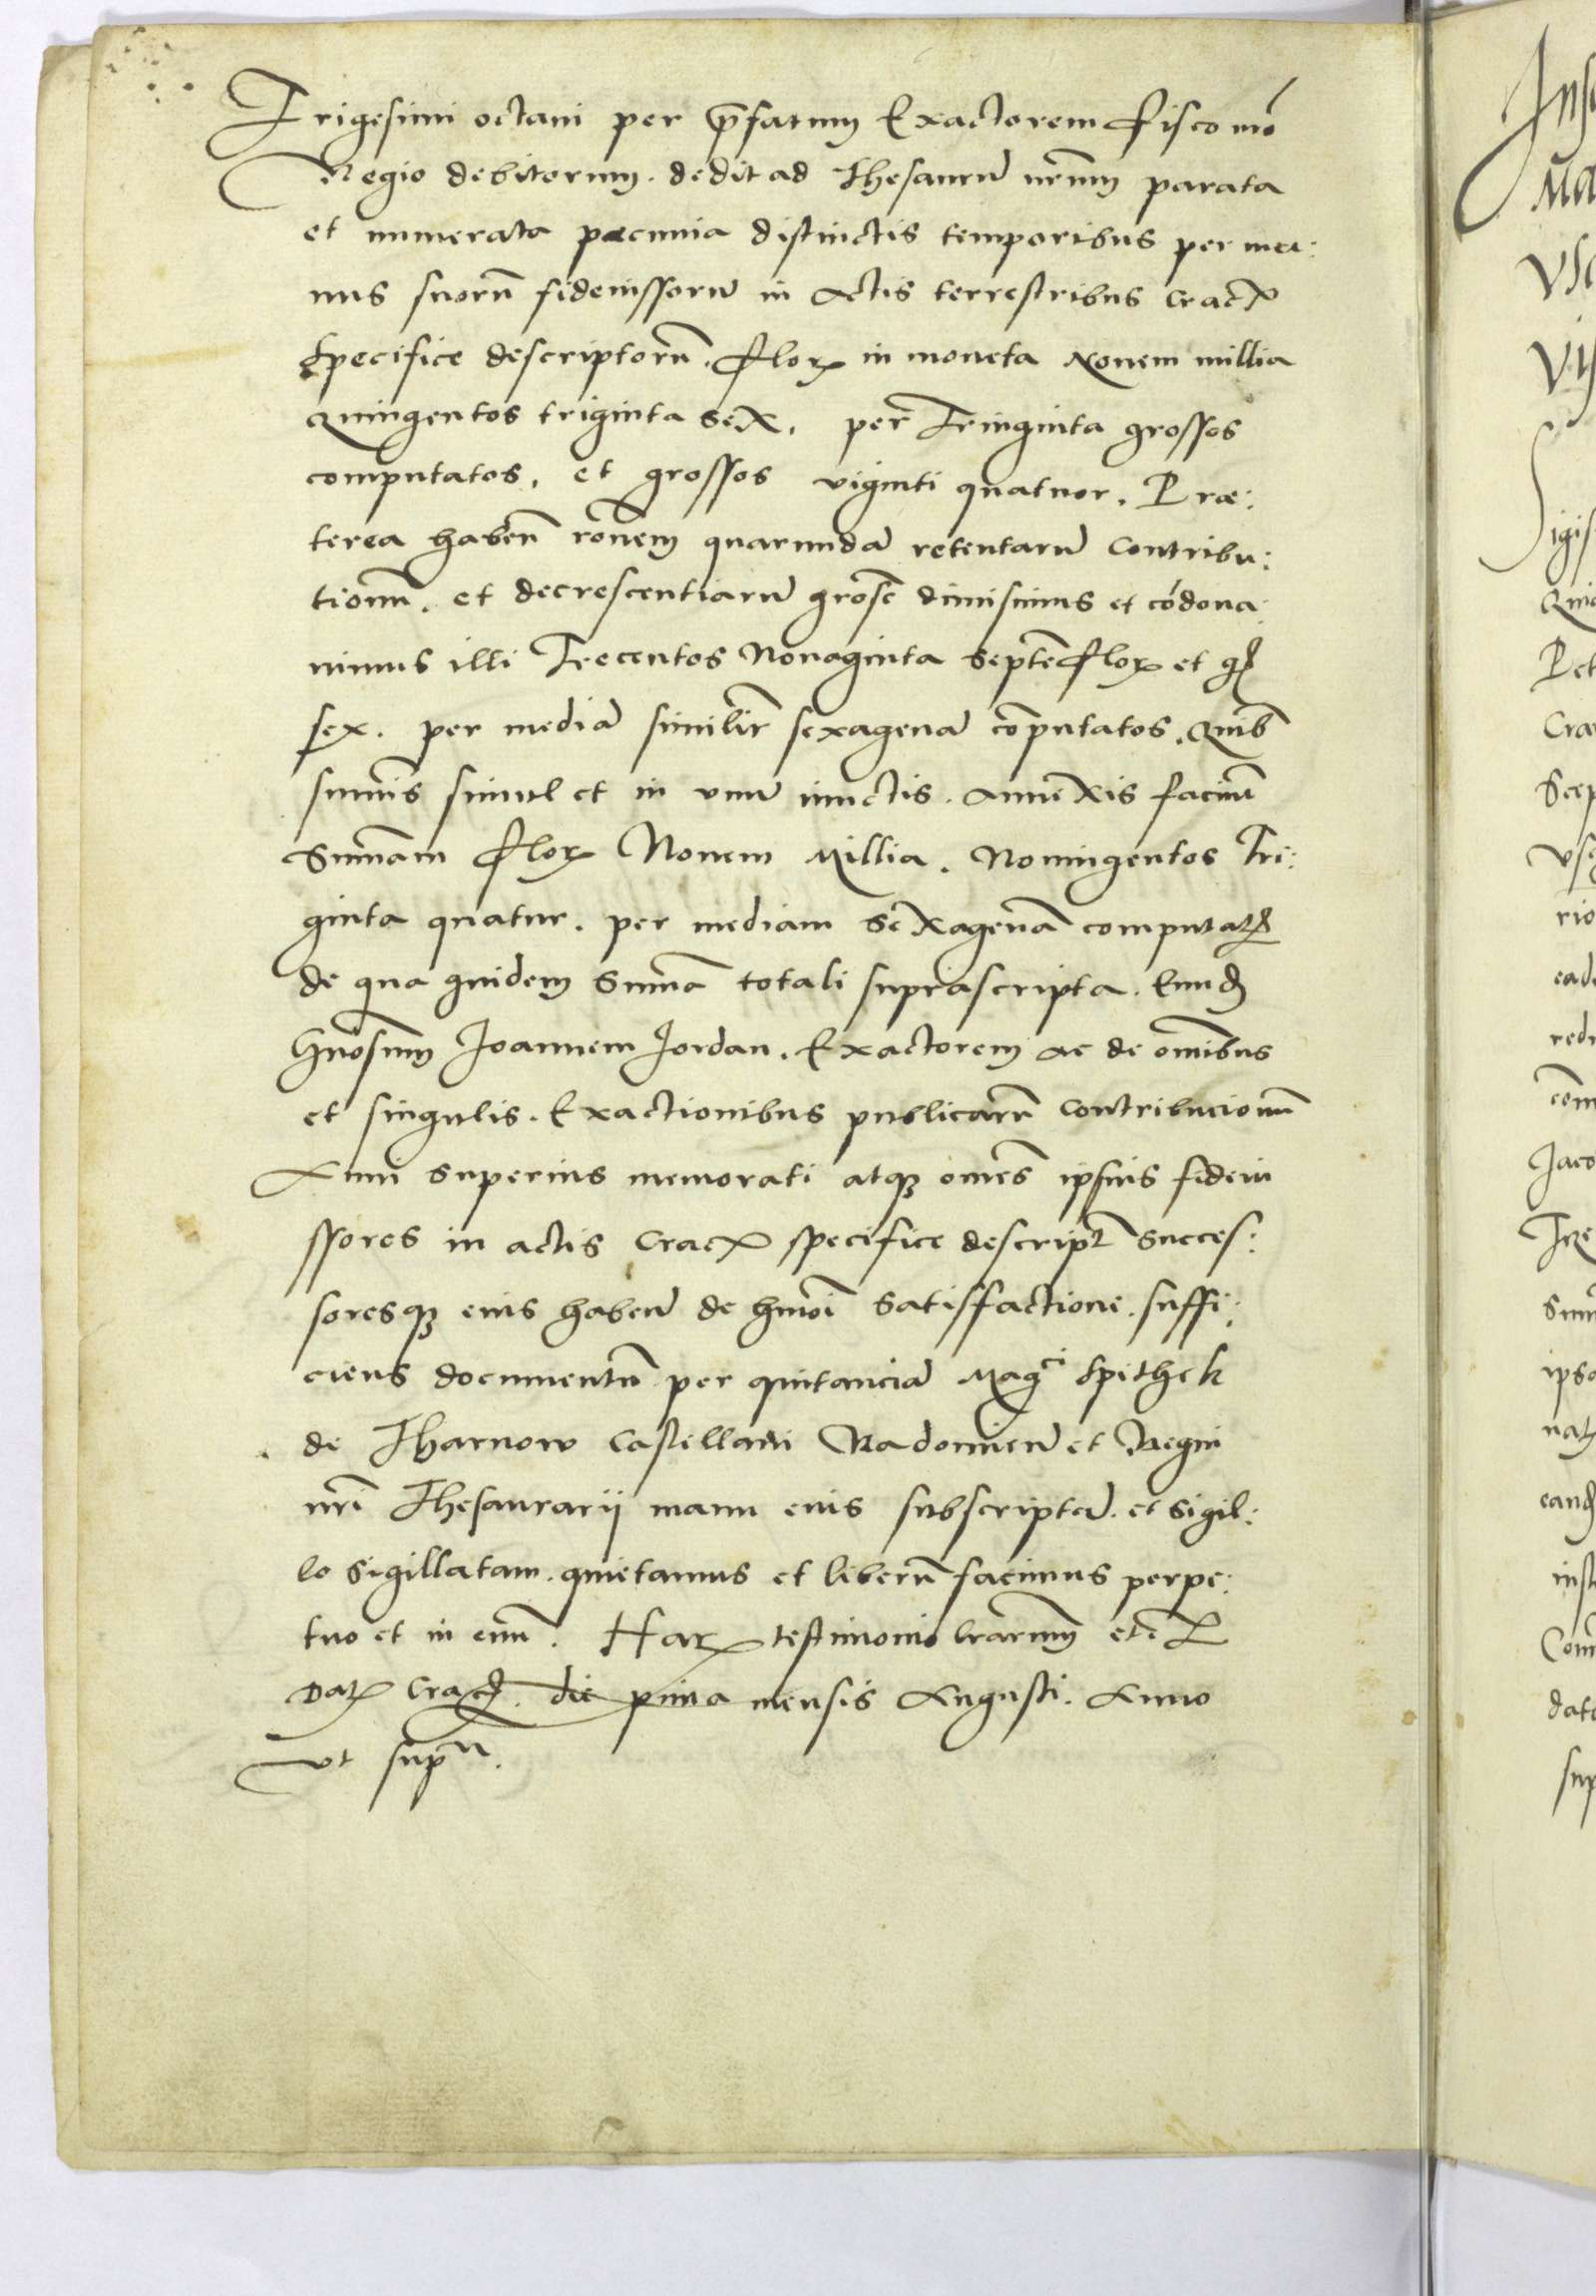 Trigesimi octaui per p̄fatum Exactorem fisco nrō
Regio debitorum. dedit ad Thesaurū nrēum parata
et numerata paecunia distinctis temporibus per ma:
nus suorū fideiussorū in Actis terrestribus Crac̄
Specifice descriptorū. flor in moneta Nouem millia
Quingentos triginta sex. per Tringinta grossos
computatos, et grossos viginti quatuor. Præ:
terea habeñ rōnem quarundā retentarū Contribu:
tionū. et decrescentiarū grosse dimisimus et cōdona:
uimus illi Trecentos Nonaginta Septē flor et gʳ
sex. per mediā similir̄ sexagenā cōputatos. Quib
sum̄is simul et in vnū iunctis. annexis faciūt
Sum̄am flor Nouem Millia. Noningentos Tri:
ginta quatur. per mediam Sexagenā computatʳ
de qua quidem Sum̄a totali suprascripta. Eund
Gn̄osum Joannem Jordan. Exactorem ac de om̄ibus
et singulis. Exactionibus publicarū Contribucionū
Anni superius memorati atqȝ om̄es ipsius fideiu
ssores in actis Crac̄ specifice descript Succes:
soresqȝ eius habeñ de hm̄oi Satisfactione. suffi:
ciens documentū per quitanciā Mag̃ci Spithek
de Tharnow Castellani Radomieñ et Regni
nrī Thesaurarij manu eius subscriptā. et sigil:
lo Sigillatam. quietamus et liberū facimus perpe:
tuo et in euū. Har testimonio lrārum etc̄
Dat Crac̄. die prima mensis Augusti. Anno
vt supra.

Ma
Vsc
Pet
Cra
Scep
vsq
rio
ead
redi
com̄
Jaco
Tre
Sum
ipso
nat
eand
inst
Com
dato
sup